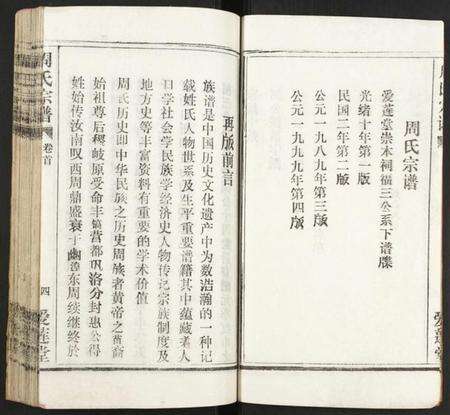 周氏宗谱
爱莲堂崇木祠福三公系下谱牒
光绪十年第一版
民国二年第二版
公元一九八九年第三版
公元一九九九年第四版
爱莲堂
再版前言
族谱是中国历史文化遗产中为数浩瀚的一种记
载姓氏人物世系及生平重要谱籍其中蕴藏着人
口学社会学民族学经济史人物传记宗族制度及
地方史等丰富资料有重要的学术价值
周氏历史即中华民族之历史周族者黄帝之裔
始祖尊后稷岐原受命丰镐营都巩洛分封惠公得
姓始传汝南叹西周鼎盛衰于幽 东周续继终於
周氏宗谱
卷首
四
爱莲堂